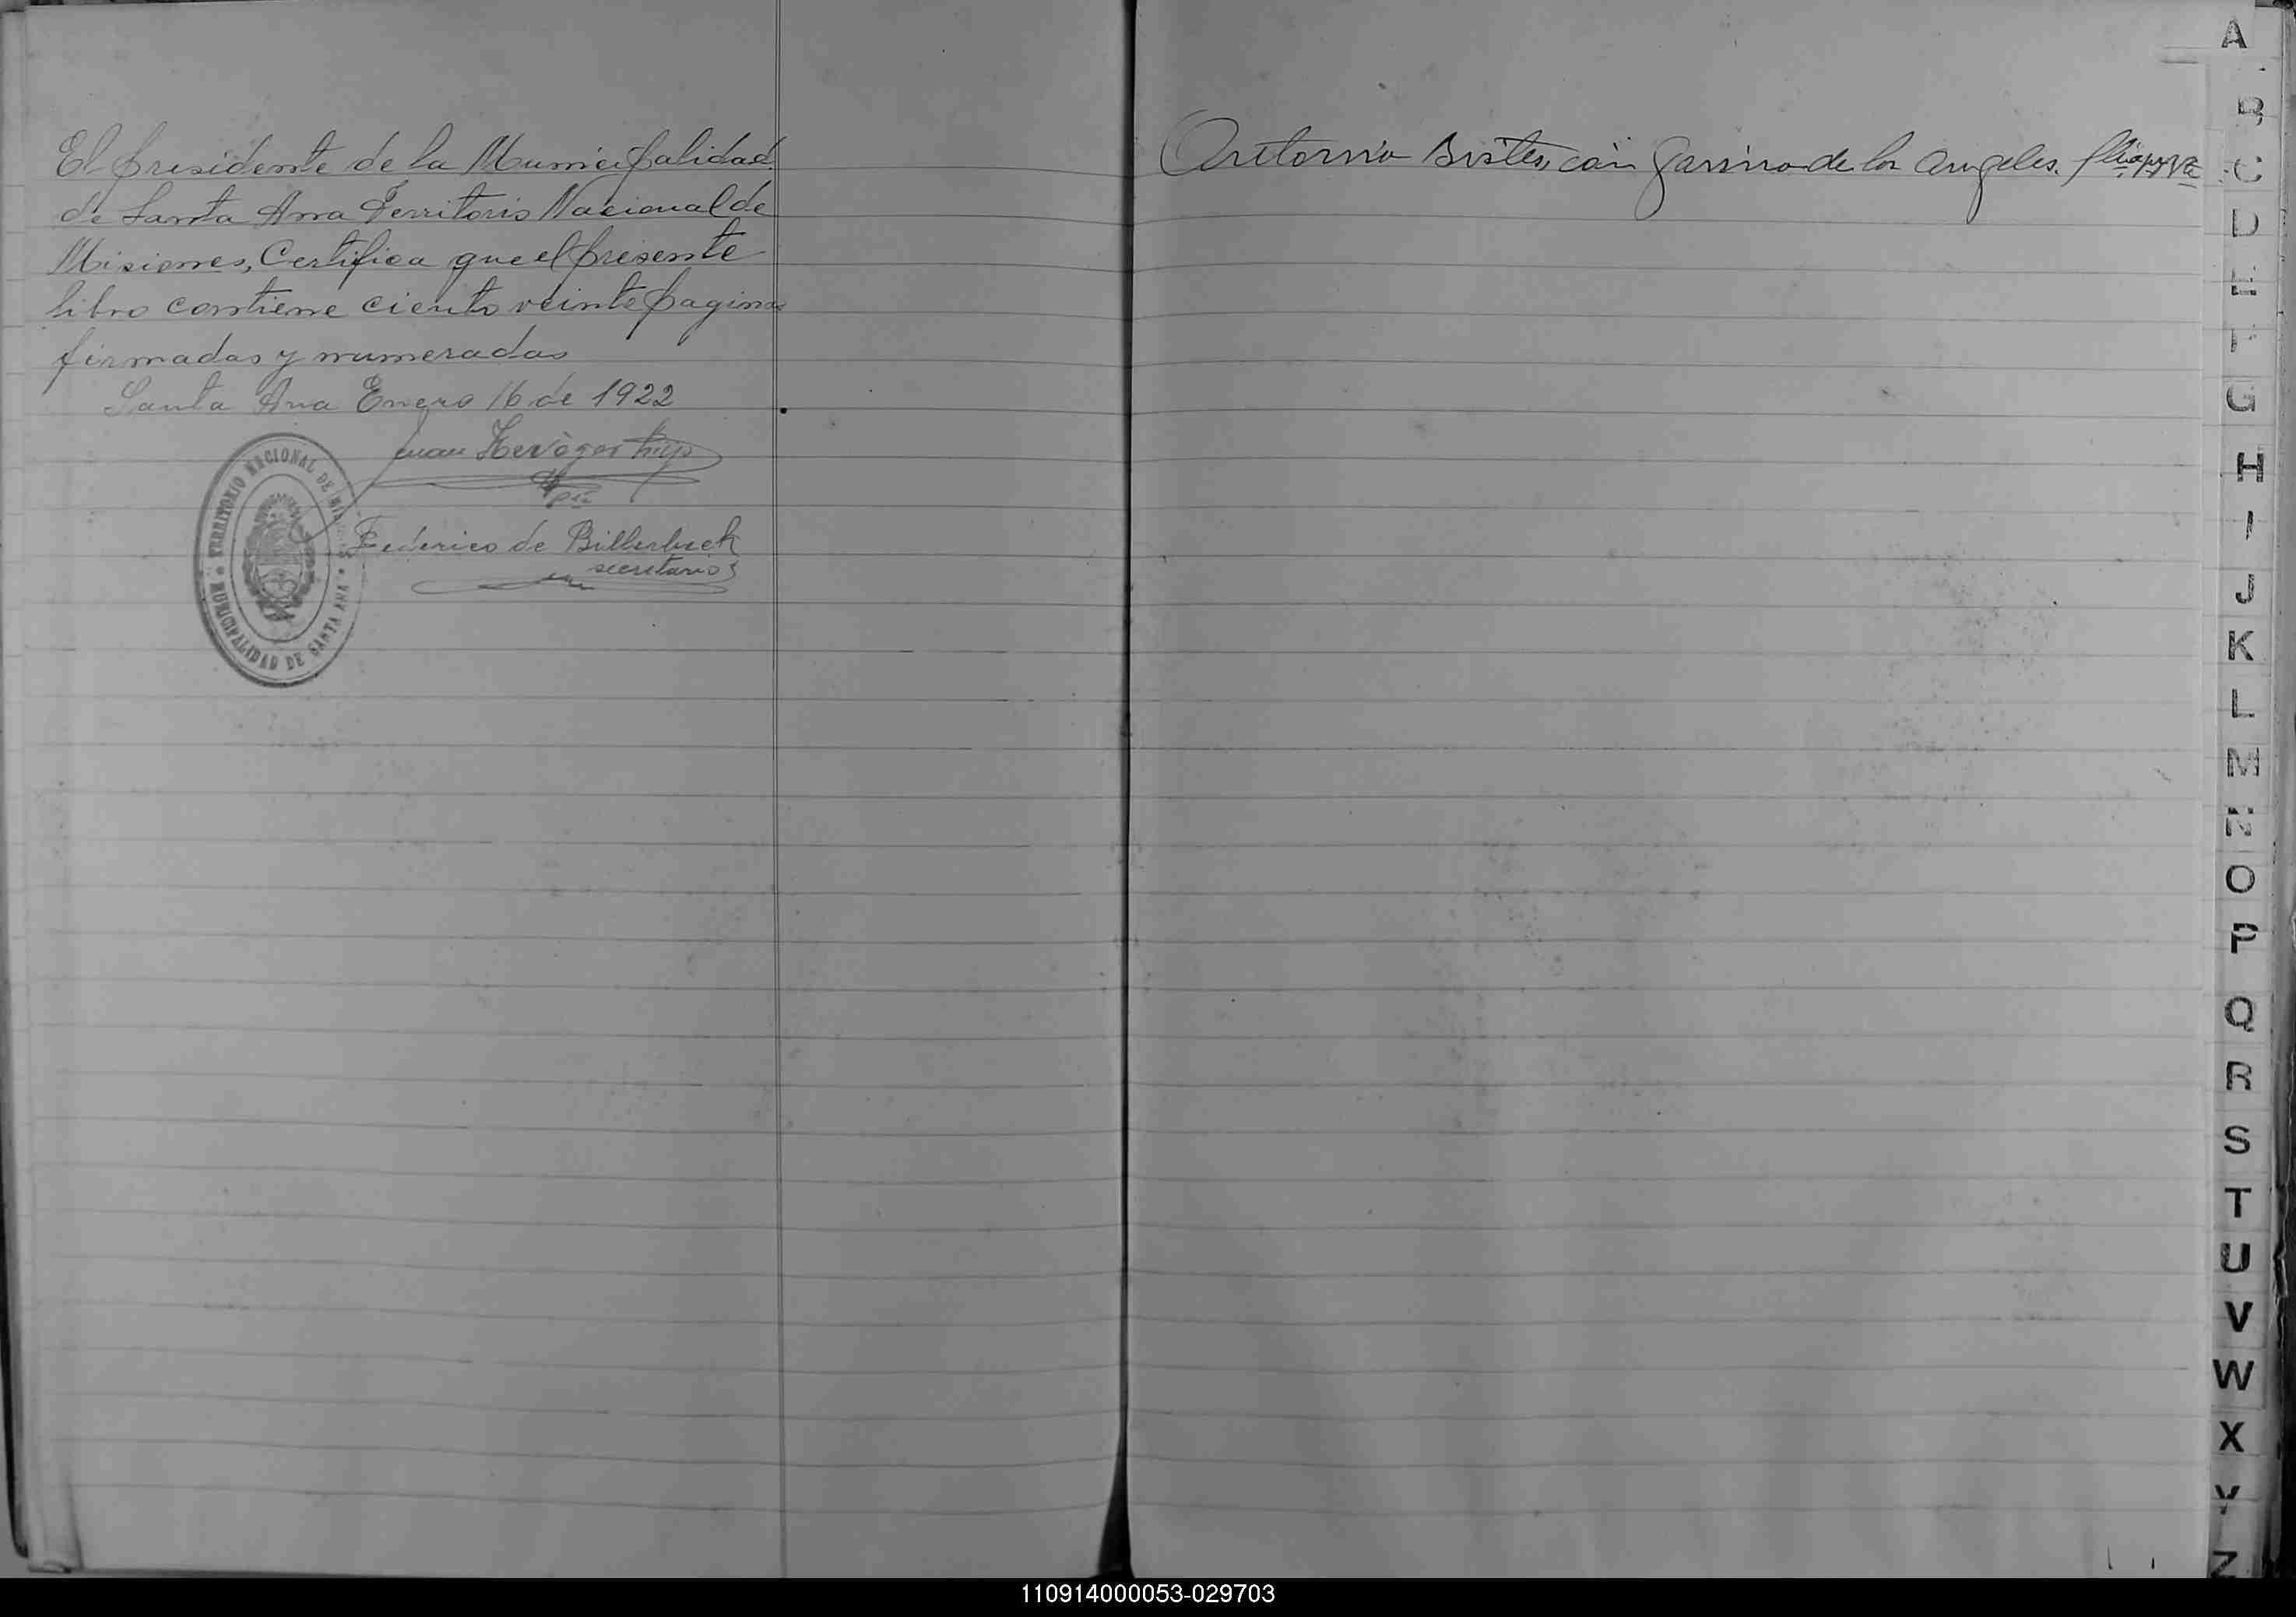 El presidente de la Municipalidad
de Santa Ana Territorio Nacional de
Misiones, Certifica que el presente
libro contiene ciento veinte paginas
firmadas y numeradas
Santa Ana Enero 16 de 1922
Juan hijo
Federico de Billerbeck
secretario
TERRITORIO NACIONAL DE MISIONES
MUNICIPALIDAD DE SANTA ANA
Antonio con de los Angeles.
A
B
C
D
E
F
G
H
I
J
K
L
M
N
O
P
Q
R
S
T
U
V
W
X
Y
Z
110914000053-029703